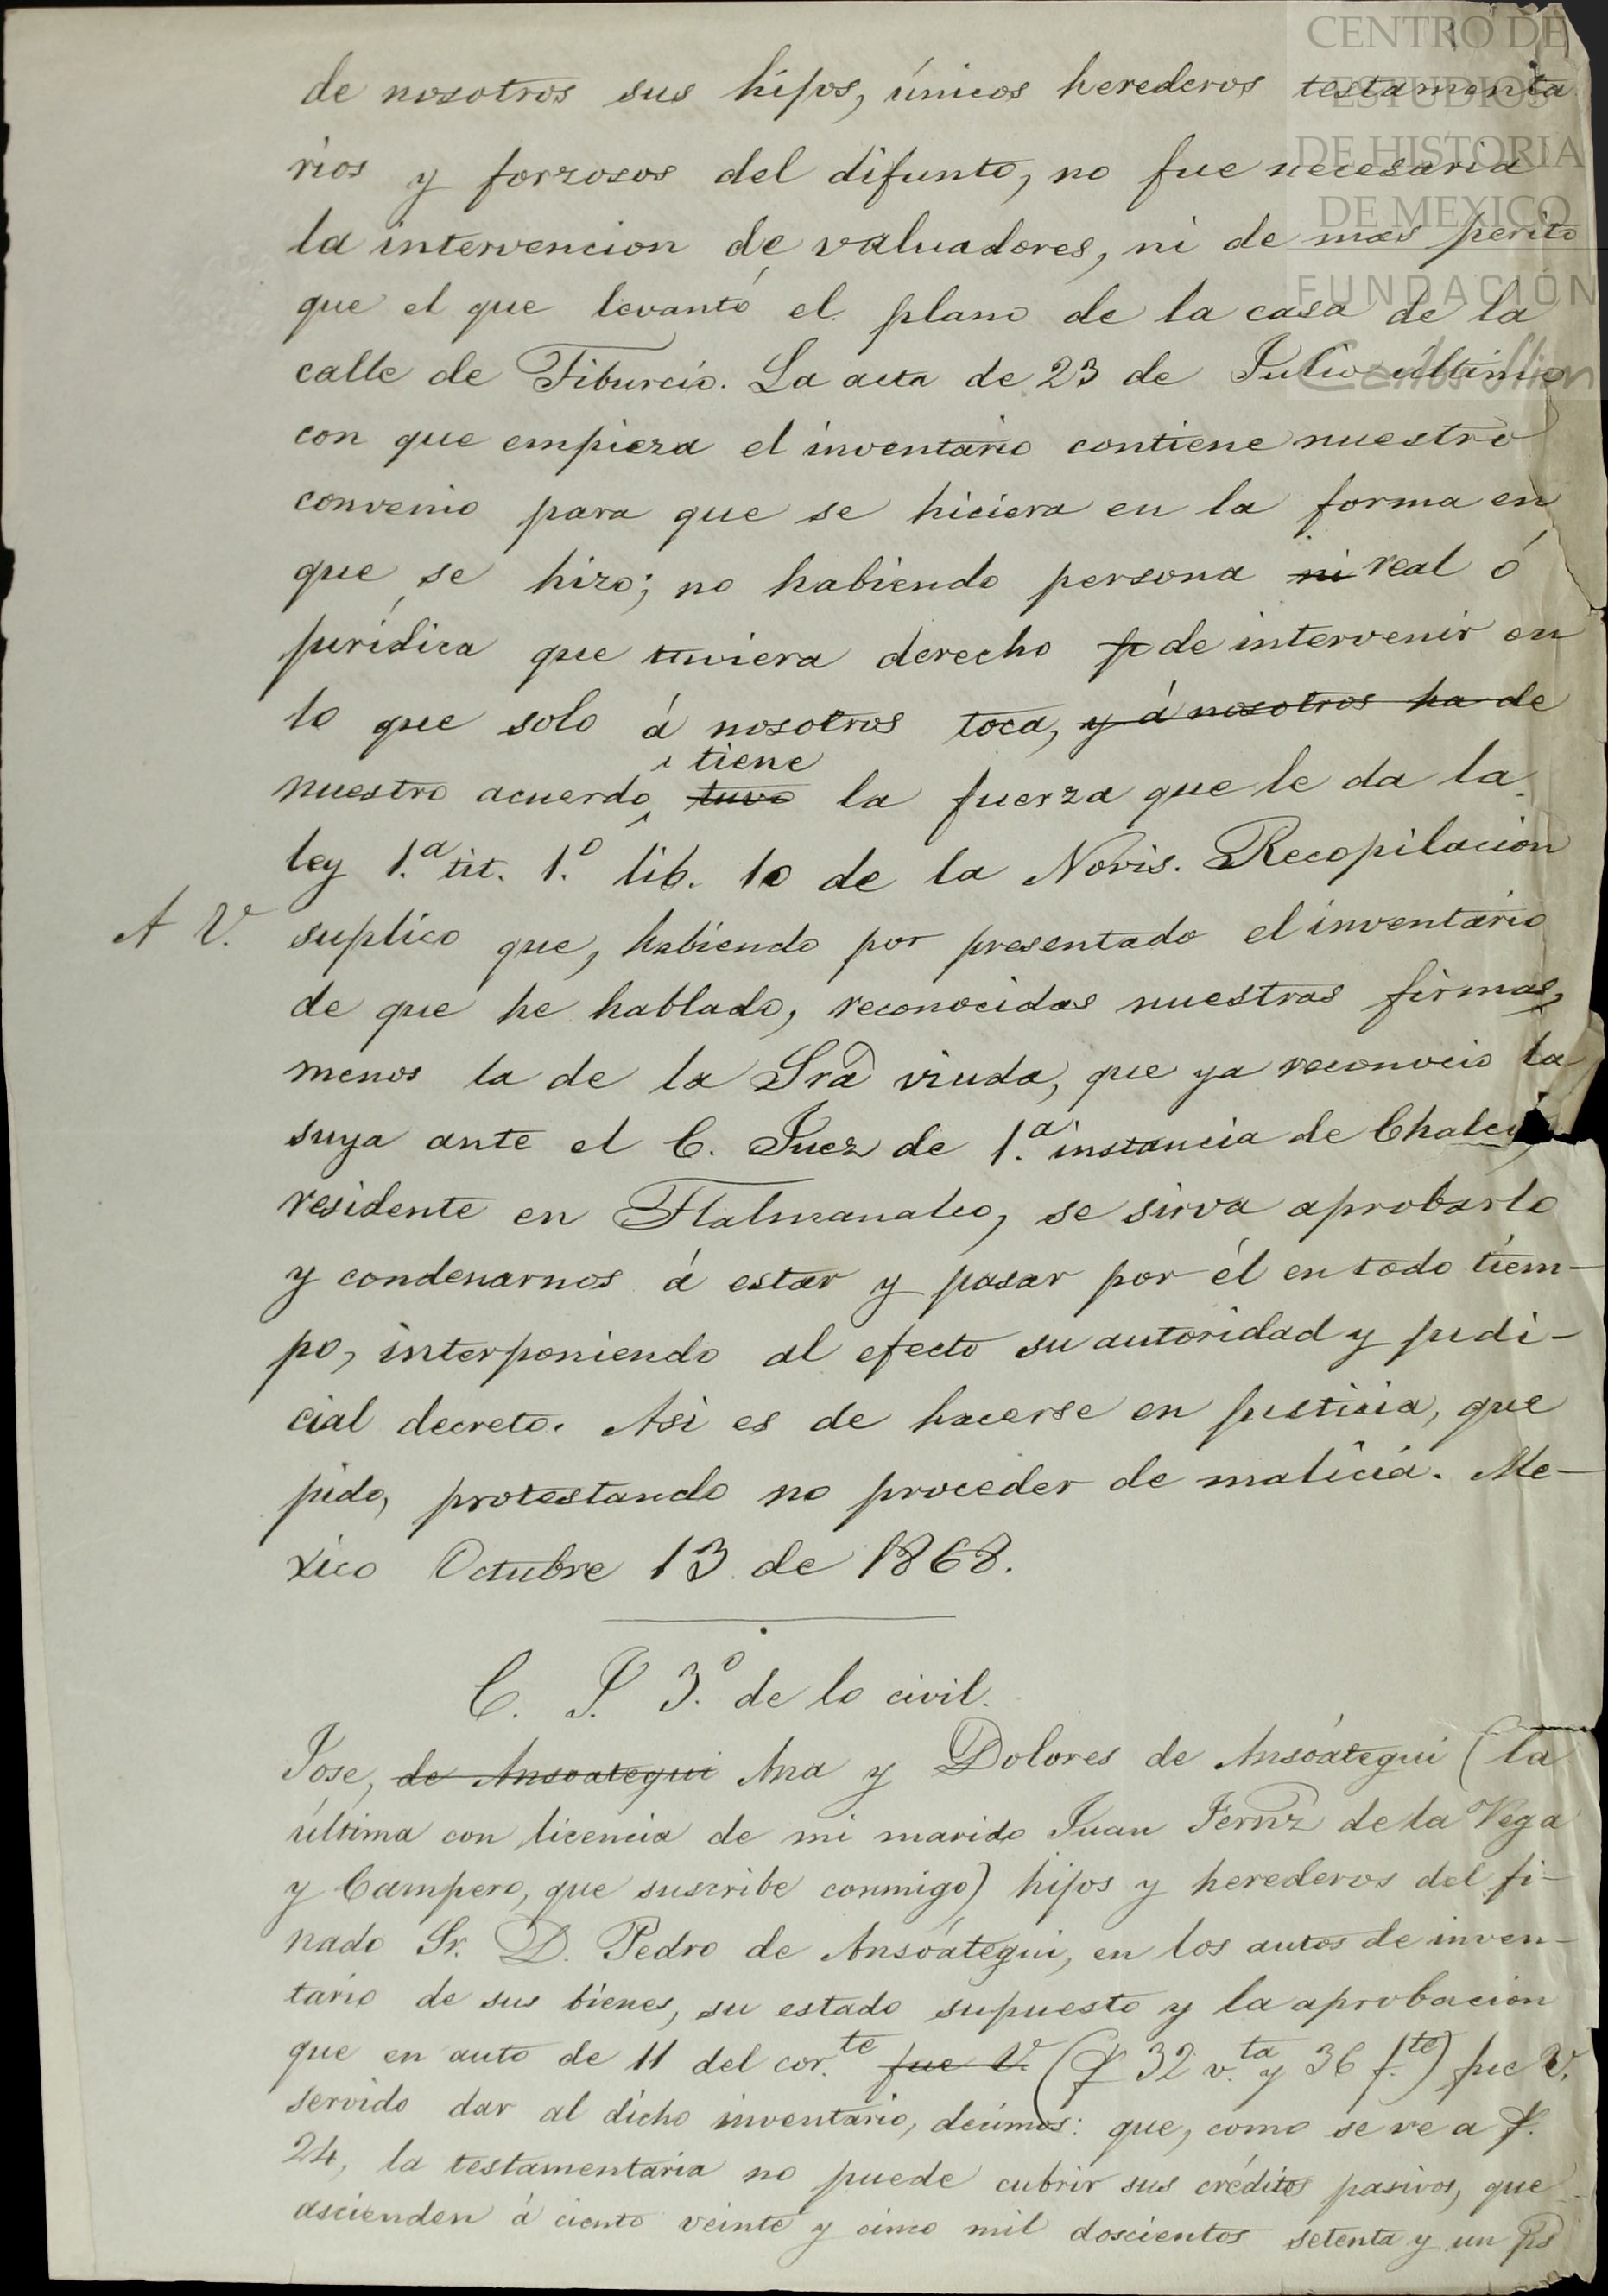 CENTRO DE
ESTUDIOS
DE HISTORIA
DE MEXICO
FUNDACIÓN
Carlos Slim
de nosotros sus hijos, únicos herederos testamenta
rios y forzosos del difunto, no fue necesaria
la intervencion de valuadores, ni de mas perito
que el que levantó el plano de la casa de la
calle de Tiburcio. La acta de 23 de Julio último
con que empieza el inventario contiene nuestro
convenio para que se hiciera en la forma en
que se hizo; no habiendo persona ni real ó
jurídica que tuviera derecho p de intervenir en
lo que solo á nosotros toca, y á nosotros ha de
tiene
nuestro acuerdo, tuvo la fuerza que le da la
ley 1.ª tit. 1.º lib. 10 de la Novis. Recopilacion
A V. suplico que, habiendo por presentado el inventario
de que he hablado, reconocidas nuestras firmas,
menos la de la Sra viuda, que ya reconocio la
suya ante el C. Juez de 1.ª instancia de Chalco,
residente en Tlalmanalco, se sirva aprobarlo
y condenarnos á estar y pasar por él en todo tiem-
po, interponiendo al efecto su autoridad y judi-
cial decreto. Asi es de hacerse en justicia, que
pido, protestando no proceder de malicia. Me-
xico Octubre 13 de 1868.
C. J. 3.º de lo civil.
Jose, de Ansoategui Ana y Dolores de Ansóategui (la
última con licencia de mi marido Juan Fernz de la Vega
y Campero, que suscribe conmigo) hijos y herederos del fi-
nado Sr. D. Pedro de Ansóategui, en los autos de inven-
tario de sus bienes, su estado supuesto y la aprobacion
que en auto de 11 del cor.te fue V. (f 32 v.ta y 36 f.te) fue V.
servido dar al dicho inventario, decimos: que, como se ve a f.
24, la testamentaria no puede cubrir sus créditos pasivos, que
ascienden á ciento veinte y cinco mil doscientos setenta y un ps